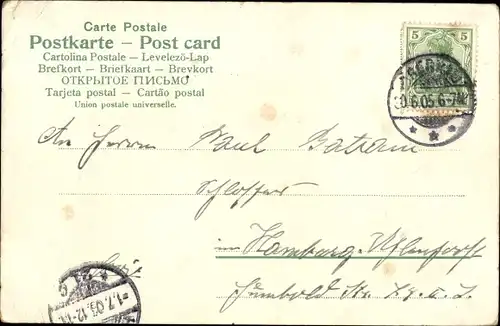 Carte Postale
Postkarte – Post card
Cartolina Postale – Levelező-Lap
Brefkort – Briefkaart – Brevkort
ОТКРЫТОЕ ПИСЬМО
Tarjeta postal – Cartão postal
Union postale universelle.
5 5
30.6.05.6-7
An Herrn Paul
Schlosser
in Hamburg-Uhlenhorst
Humboldt Str.
1.7.05.12-1